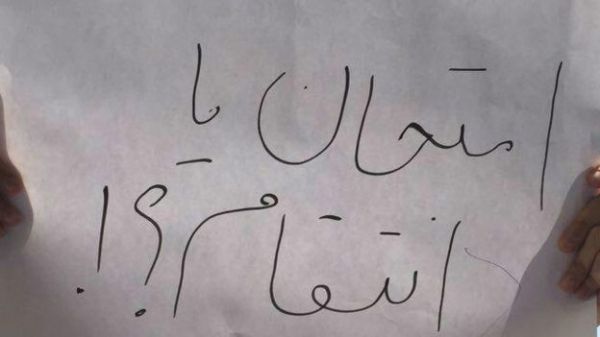 امتحان یا
انتقام؟!